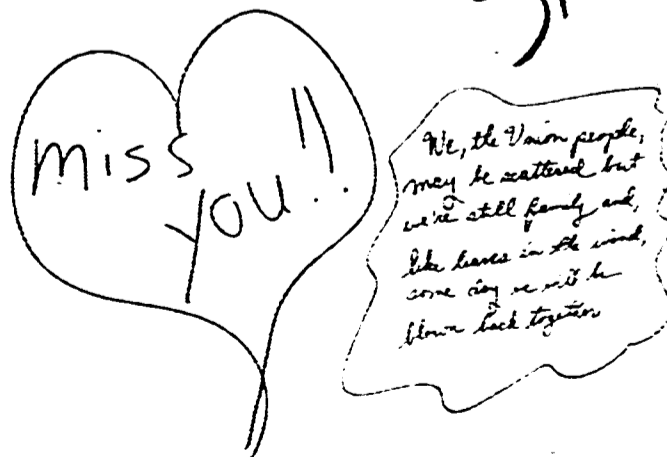 miss
you!!
We, the Union people,
may be scattered but
we're still family and,
like leaves in the wind,
some day we will be
blown back together